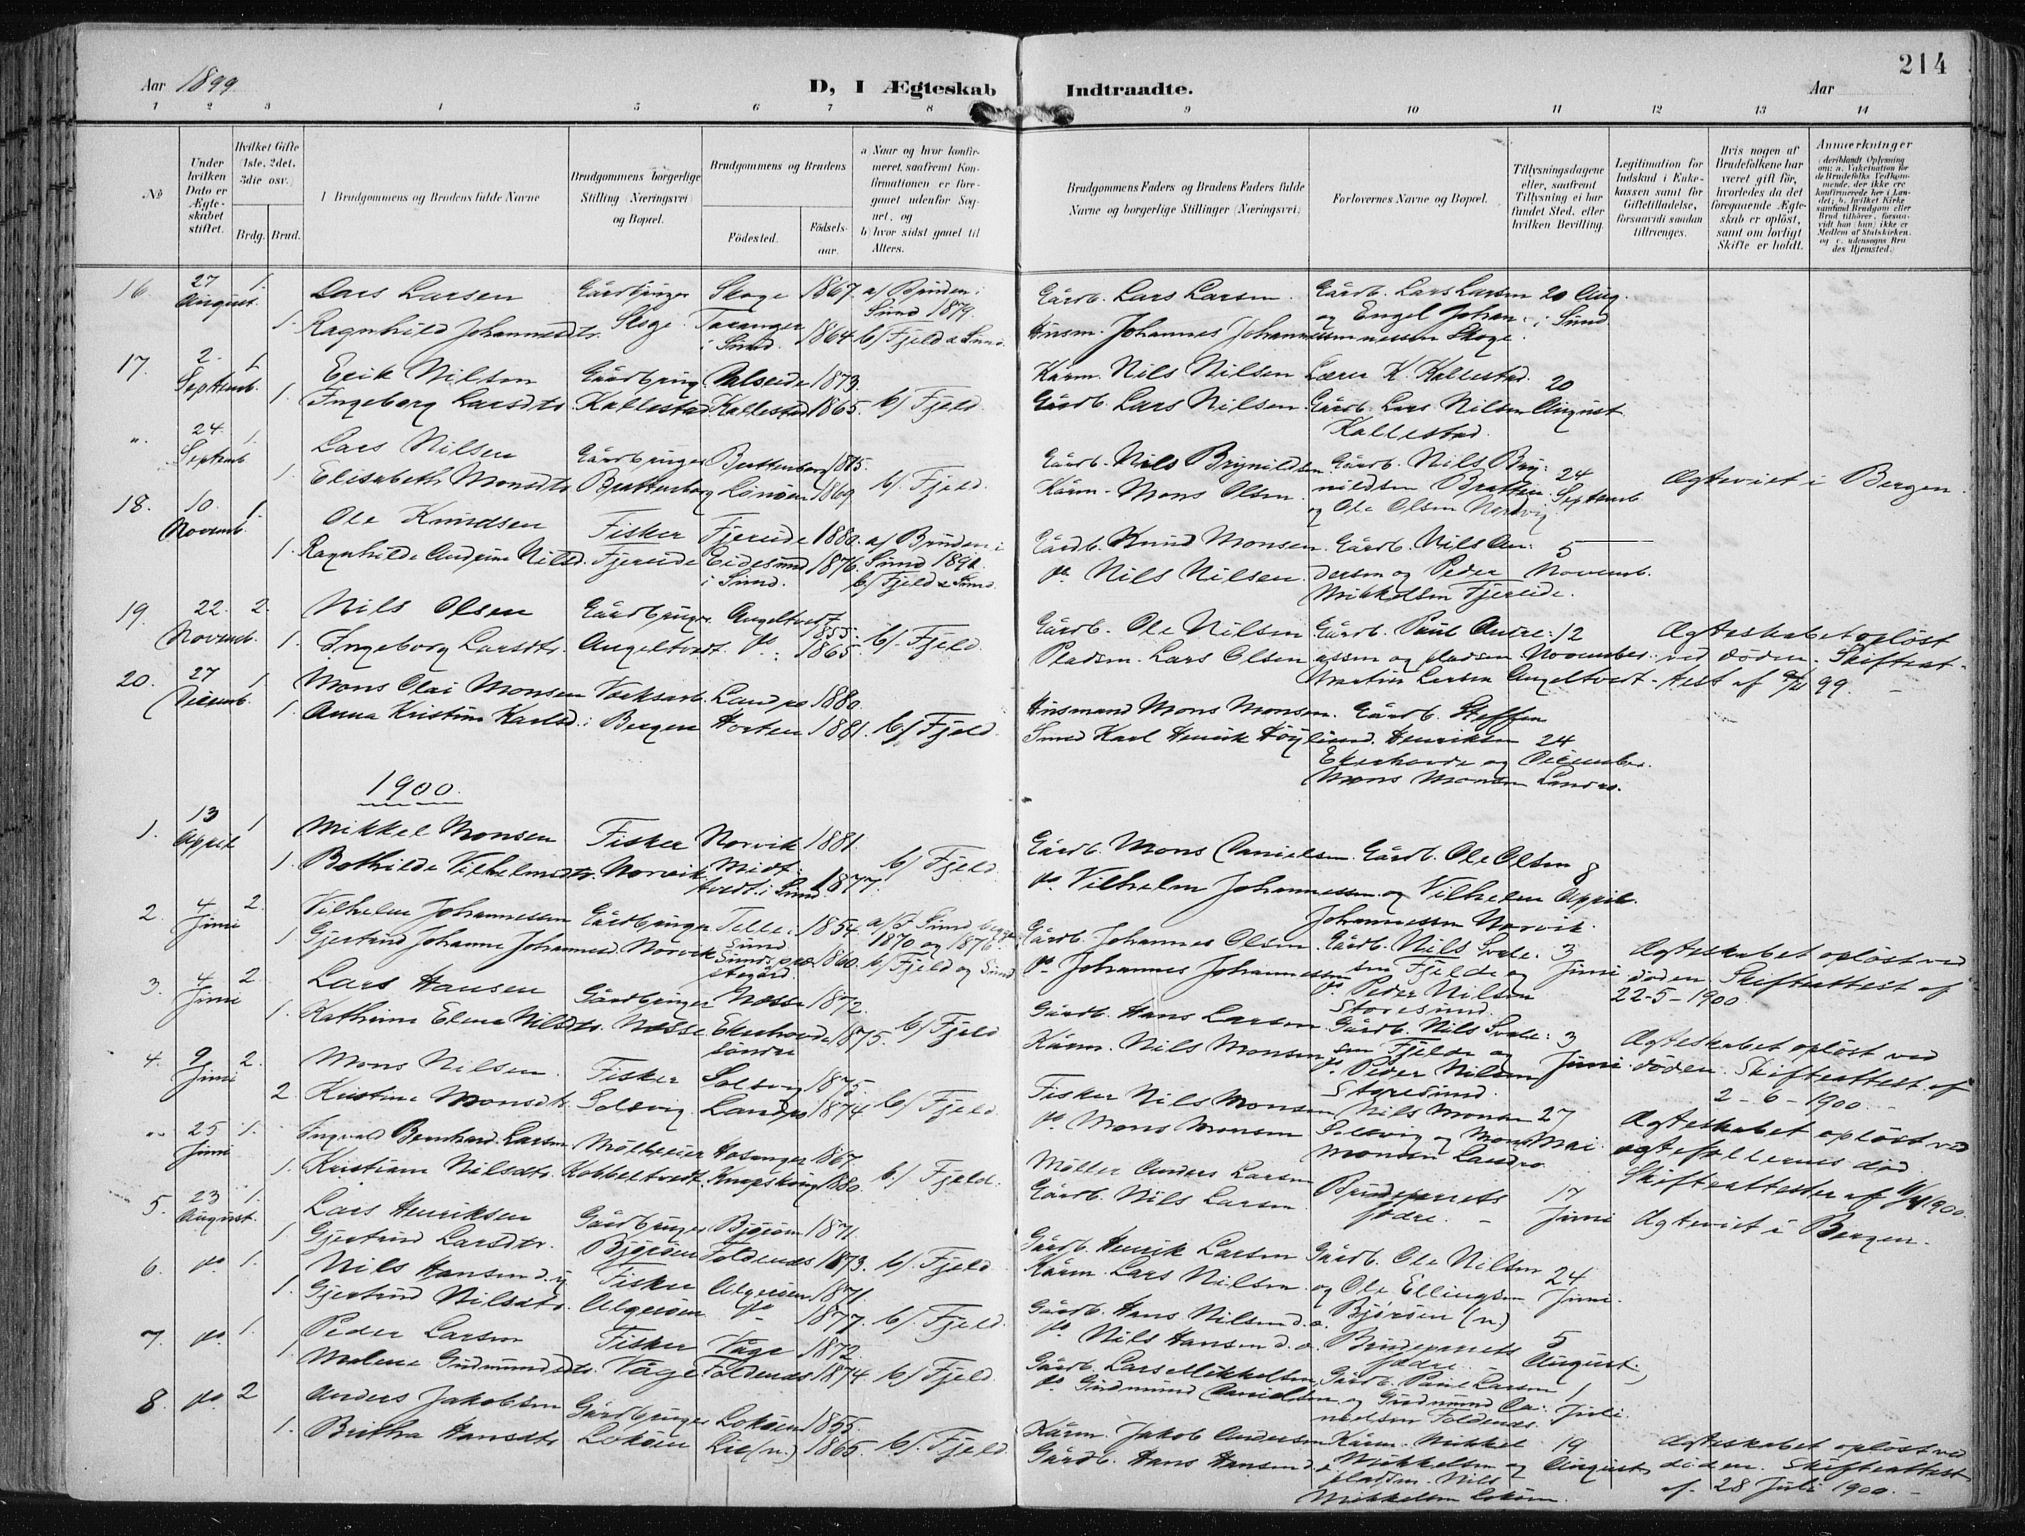 214
Aar 1899
D, I Ægteskab Indtraadte.
Aar
1 2 3 4 5 6 7 8 9 10 11 12 13 14
No
Under hvilken Dato er Ægteskabet stiftet.
Hvilket Gifte (1ste, 2det, 3die osv.)
Brdg. Brud.
Brudgommens og Brudens fulde Navne
Brudgommens borgerlige Stilling (Næringsvei) og Bopæl.
Brudgommens og Brudens
Fødested. Fødselsaar.
a Naar og hvor konfirmeret, saafremt Konfirmationen er foregaaet udenfor Sognet, og
b) hvor sidst gaaet til Alters.
Brudgommens Faders og Brudens Faders fulde Navne og borgerlige Stillinger (Næringsvei)
Forlovernes Navne og Bopæl.
Tillysningsdagene eller, saafremt Tillysning ei har fundet Sted, efter hvilken Bevilling.
Legitimation for Indskud i Enkekassen samt for Giftetilladelse, forsaavidt saadan tiltrænges.
Hvis nogen af Brudefolkene har været gift før, hvorledes da det foregaaende Ægteskab er opløst, samt om lovligt Skifte er holdt.
Anmærkninger
16. 27 August. 1. Lars Larsen Gårdbruger Skoge 1867. a/ Bruden i Sund 1879. Gårdb. Lars Larsen Gårdb. Lars Larsen 20 Aug.
1. Ragnhild Johannesdtr. Skoge Tosanger i Sund. 1864 b/ Fjeld & Sund. Husm. Johannes Johannessen og Engel Johannessen Skoge. i Sund
17. 2. Septemb. 1. Erik Nilsen Gårdbrug 1873. Kårm. Nils Nilsen Lærer K. Kallestad. 20
1. Ingeborg Larsdtr. Kallestad Kallestad 1865. b/ Fjeld. Gårdb. Lars Nilsen Gårdb. Lars Nilsen August
Kallestad.
" 24. Septemb 1. Lars Nilsen Gårdbruger Brattenborg 1875. Gårdb. Nils Brynildsen Gårdb. Nils Bry: 24
1. Elisabeth Monsdtr. Brattenborg Lönöen 1869 b/. Fjeld. Kårm. Mons Olsen nildsen Bratten. Septemb Ægteviet i Bergen.
og Ole Olsen
18. 10. Novemb 1. Ole Knudsen Fisker Fjereide 1880. a/ Bruden i Gårdb. Knud Monsen. Gårdb. Nils An: 5
1. Ragnhilde Andrine Nilsd. Fjereide Eidesund i Sund. 1876. Sund b/ Fjeld & Sund. do Nils Nilsen dersen og Peder Novemb.
Mikkelsen Fjereide.
19. 22. Novemb. 2. Nils Olsen Gårdbruger Angeltvedt 1855. Gårdb. Ole Nilsen Gårdb. Paul Andre: 12 Ægteskabet opløst
1. Ingeborg Larsdtr. Angeltvedt. do 1865. b/. Fjeld. Pladsm. Lars Olsen assen og pladsm. November. ved døden. Skifteat-
Martin Larsen Angeltvedt - test af 99.
20. 27 Decemb. 1. Mons Olai Monsen Landro 1880. Husmand Mons Monsen. Gårdb. Steffen
1. Anna Kristine Karlsd. i Bergen Horten 1881. b/ Fjeld. Smed Karl Henrik Höglund. Henriksen 24
Ekerhovde og December.
Mons Monsen Landro.
1900.
1. 13 April 1 Mikkel Monsen Fisker Norvik 1881. Gårdb. Mons Danielsen. Gårdb. Ole Olsen 8
1. Bothilde Vilhelmsdtr. Norvik Midttvedt i Sund. 1877. b/ Fjeld do Vilhelm Johannessen og Vilhelm April.
Johannessen Norvik.
2. 4 Juni 2. Vilhelm Johannessen Gårdbruger Telle: Sund 1854 a/ i Sund begge 1870 og 1876. Gårdb. Johannes Olsen Gårdb. Nils Svale: 3 Ægteskabet opløst ved
1 Gjertrud Johanne Johannesd. Norvik Sunds præstegård. 1860. b/ Fjeld og Sund do Johannes Johannessen sen Fjelde og Juni døden. Skifteattest af
do Peder Nilsen Storesund. 22-5-1900.
3. 4 Juni 2 Lars Hansen Gårdbruger Næsse 1872. Gårdb. Hans Larsen Gårdb. Nils Svale: 3 Ægteskabet opløst ved
1. Kathrine Elena Nilsdtr. Næsse Ekerhovde søndre 1875. b/ Fjeld Kårm. Nils Monsen sen Fjelde og Juni. døden. Skifteattest af
do Peder Nilsen Storesund. 2-6-1900.
4. 9 Juni 2. Mons Nilsen. Fisker Solsvig 1875. Fisker Nils Monsen Nils Monsen 27 Ægteskabet opløst ved
2. Kristine Monsdtr. Solsvig. Landro 1874 b/ Fjeld. do Mons Monsen Solsvig og Mons Mai. ægtefællernes død.
Monsen Landro Skifteattester af 1900.
" 25 Juni 1. Ingvald Bernhard Larsen Mølleeier Hosanger 1867 Møller Anders Larsen Brudeparrets 17
1. Kristiane Nilsdtr. Kobbeltvedt. Knapskog 1880. b/ Fjeld. Gårdb. Nils Larsen fædre. Juni Ægteviet i Bergen.
5. 23 August. 1. Lars Henriksen Gårdbruger Bjøröen 1871. Gårdb. Henrik Larsen Gårdb. Ole Nilsen 24
1 Gjertrud Larsdtr. Björöen Foldenes 1873. b/. Fjeld Kårm. Lars Nilsen og Ole Ellingsen Juni.
Bjørøen (n.)
6. do 1. Nils Hansen d. y. Fisker Algeröen 1871 Gårdb. Hans Nilsen d. æ. Brudeparrets 5
1. Gjertrud Nilsdtr. Algeröen do 1877. b/. Fjeld. do Nils Hansen d. æ. fædre. August.
7. do 1. Peder Larsen Fisker Våge 1872. Gårdb. Lars Mikkelsen Gårdb. Paul Larsen 1
1 Malene Gudmundsdtr. Våge Foldenes 1874 b/ Fjeld. do Gudmund Danielsen og Gudmund Da: Juli.
nielsen Foldenes.
8. do 2 Anders Jakobsen Gårdbruger Lokøen 1855. Kårm. Jakob Andersen Kårm. Mikkel 19 Ægteskabet opløst ved
1. Britha Hansdtr. Lokøen Lie (n.) 1865. b/. Fjeld Gårdb. Hans Hansen Mikkelsen og August døden. Skifteattest
pladsm. Nils Mikkelsen Lokøen. af 28 Juli 1900.